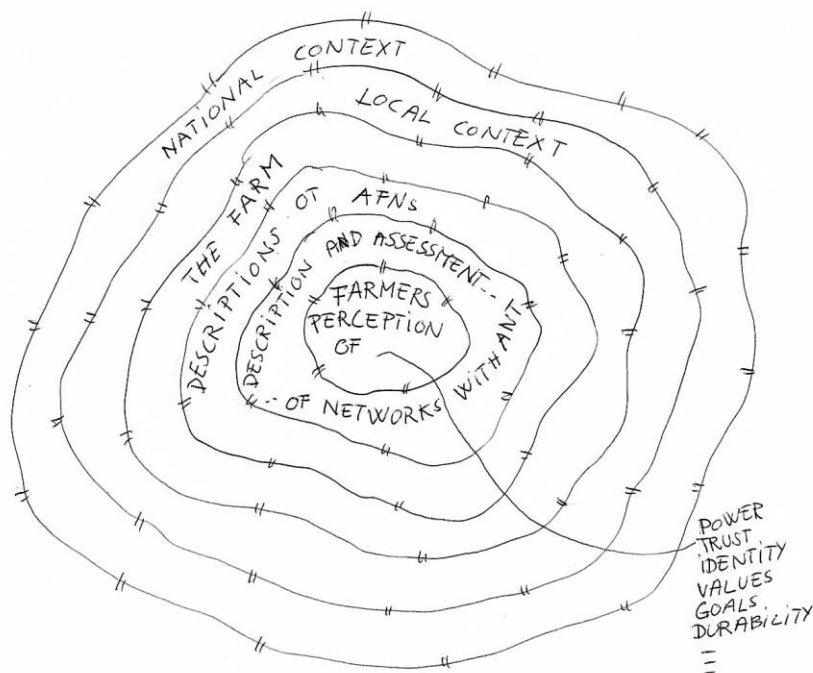 NATIONAL CONTEXT
LOCAL CONTEXT
THE FARM
DESCRIPTIONS OT AFNs
DESCRIPTION AND ASSESSMENT...
... OF NETWORKS WITH ANT
FARMERS
PERCEPTION
OF
POWER
TRUST
IDENTITY
VALUES
GOALS
DURABILITY